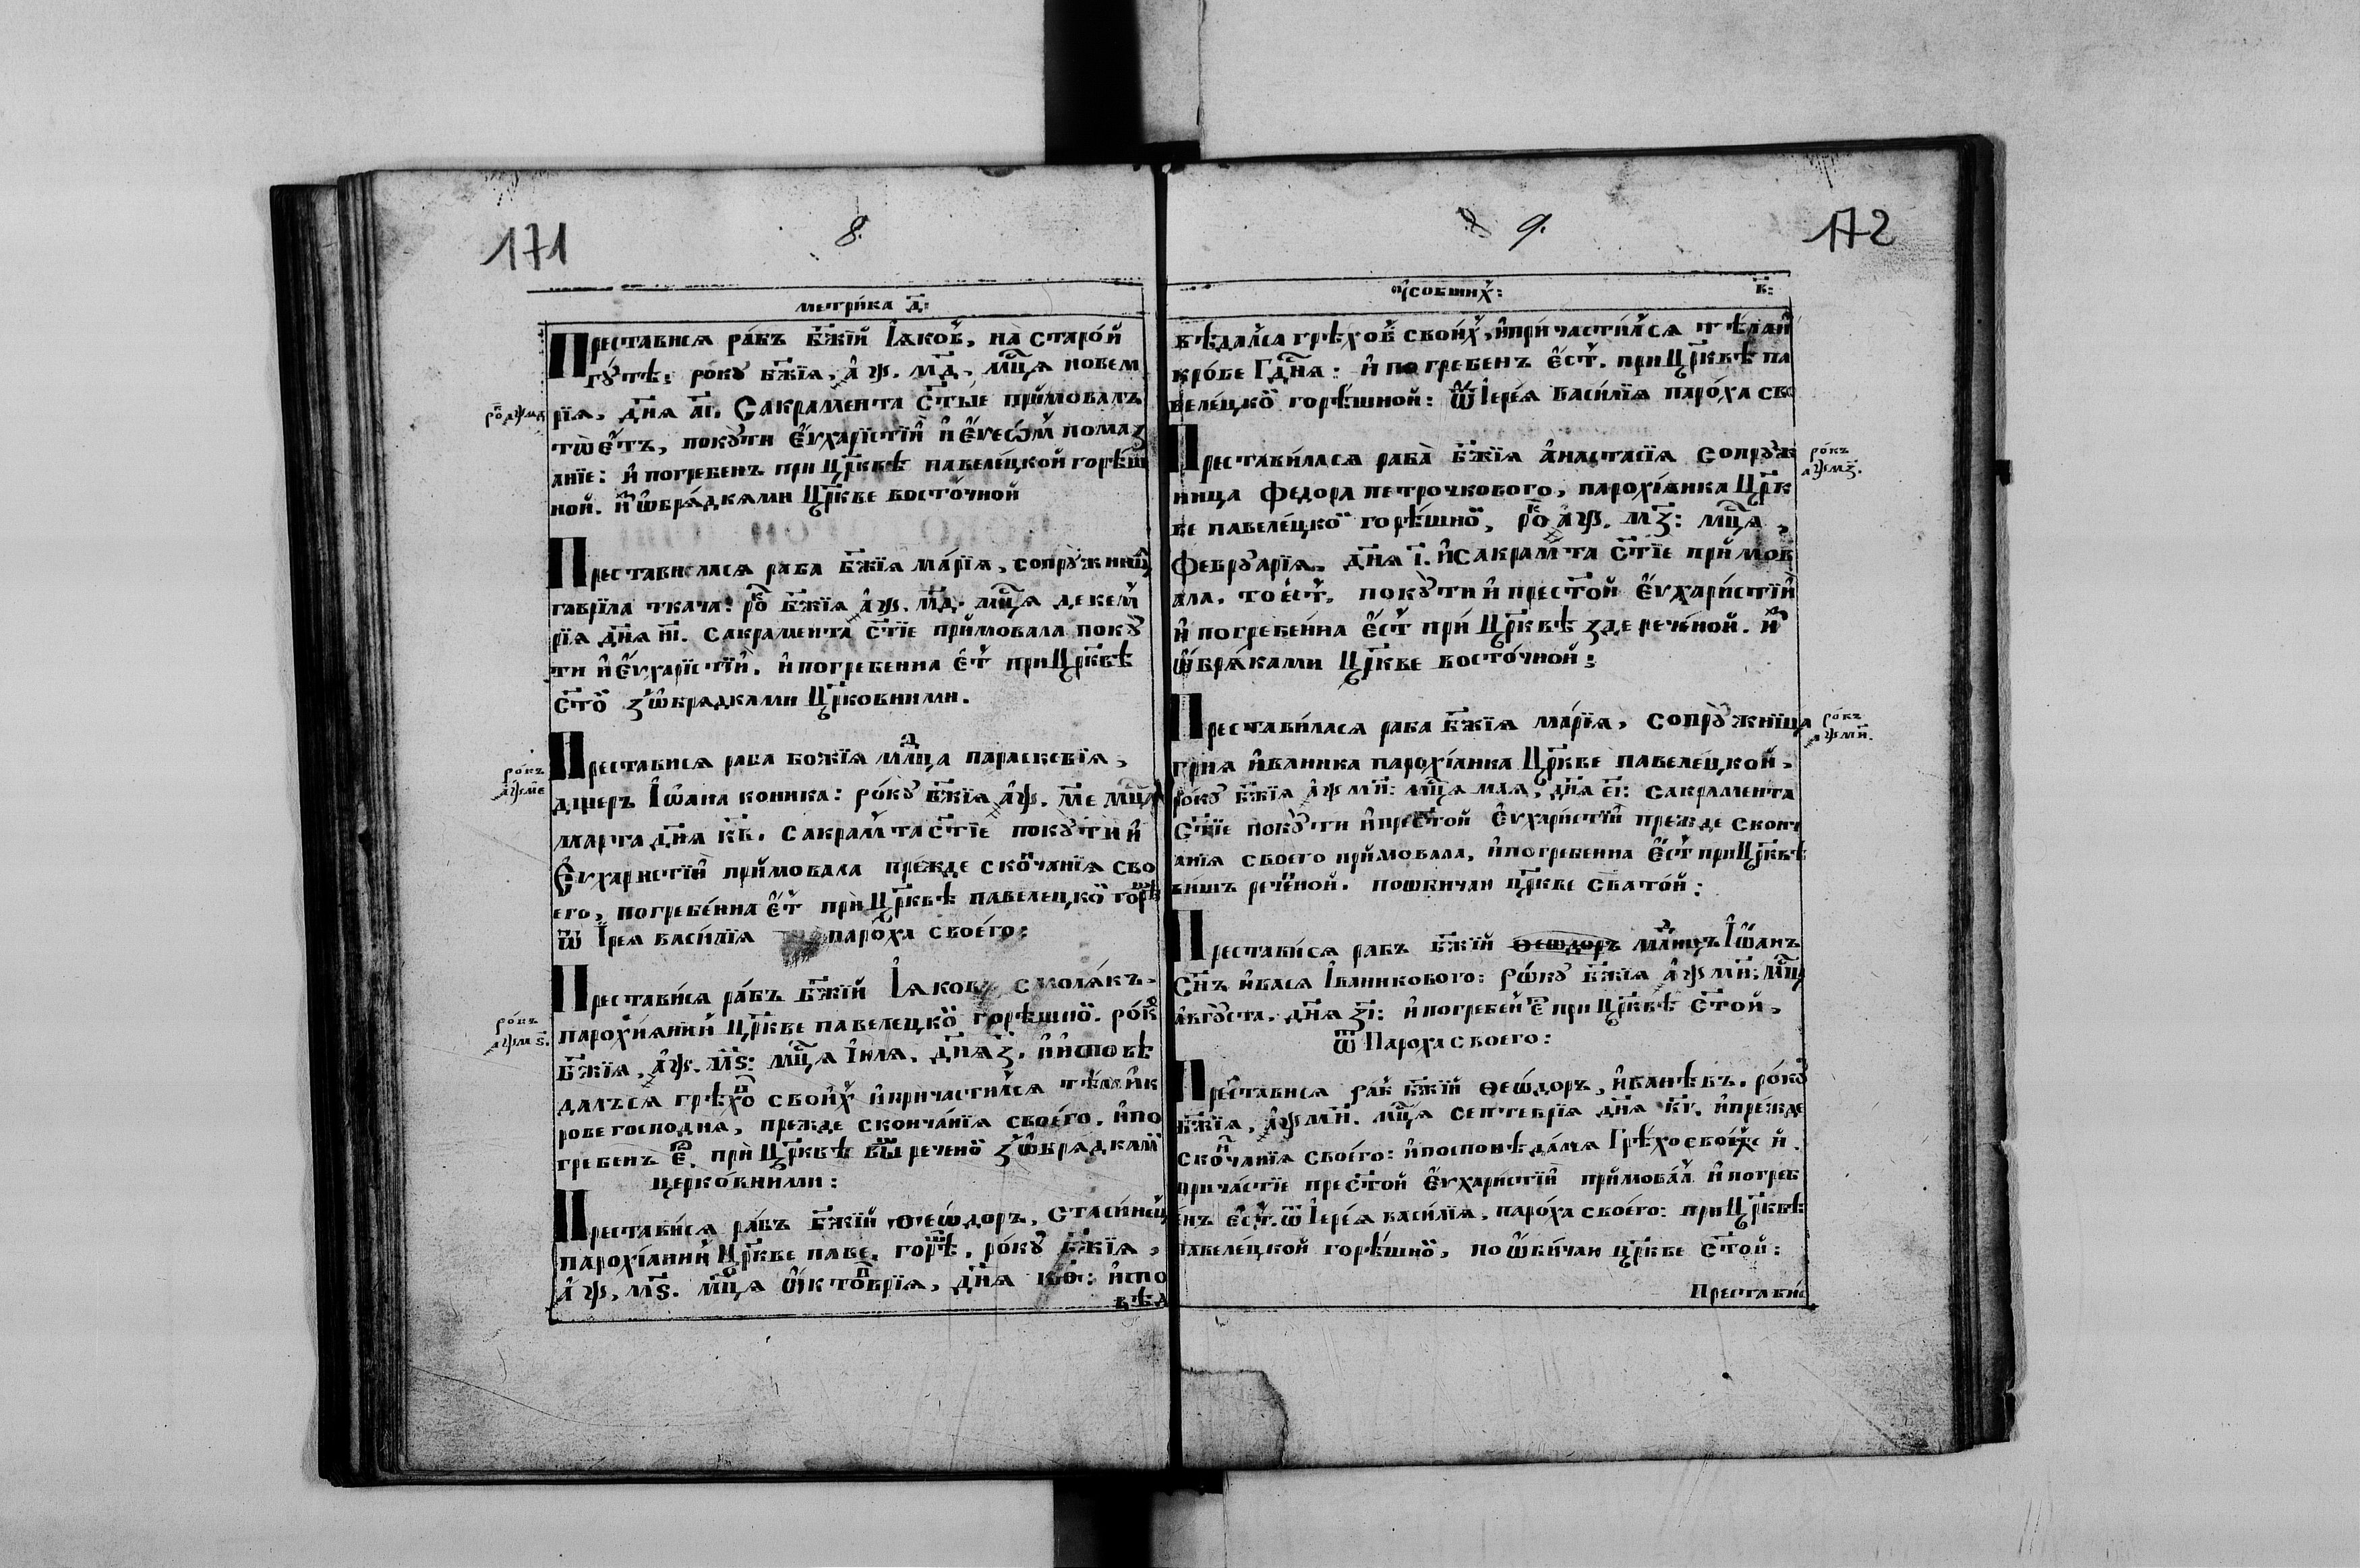 171
8.
метри́ка д҃:
Преставися ра́бъ Бж҃їй Іаковъ, на̀ старо́й
гу́тѣ: ро́кꙋ Бж҃їя, а҂ѱ. м҃д, мц҃а новем
ро҃ аѱмд
рїя, дн҃я а҃і. Сакрамента ст҃ые прїймовалъ
тѡ ест҃ъ, покꙋти Еѵхарїстїй и Елеѡм помаз
анїе: и погребенъ при Цр҃квѣ павеле́цкой горѣ́ш
ной. и ѡбря́дками Цр҃кве восто́чной
Преставилася раба Бж҃їя ма́рїя, сопрꙋжниц
гаврїла ткача: ро҃к Бж҃їя а҂ѱ. м҃д. мц҃а декем
рїя дн҃я н҃і. сакрамента ст҃їе прїймовала покꙋ
ти и Еѵхарїстїй. и погребенна ест҃ при Цр҃квѣ
ст҃о зѡбрядками Цр҃ковними.
Преставися раба божїя млд҃ца параскевїя,
рокъ
аѱме
дщеръ Іѡана коника: ро́кꙋ Бж҃їя а҂ѱ. м҃е мц҃а
марта дн҃я к҃в. сакрамта ст҃їе покꙋти и
Еѵхаристїй прїймовала прежде скочанїя сво
его, погребе́нна ест҃ при Цр҃квѣ павелецко горѣ
ѿ Іре҃я васи́лїя паро́ха своего:
Преста́вися ра́бъ Бж҃їй Іаковъ смолакъ.
парохїянїй Цр҃кве павелецко горѣшно. ро́к
рокъ
аѱмѕ.
Бж҃їя, а҂ѱ. м҃ѕ: мц҃а Іюля, дн҃я з҃. и исповѣ
далъся грѣхо своих и причастился тѣла и к
рове господня, прежде сконча́нїя своего, и по
гребенъ е҃. при Цр҃квѣ вы речено зѡбрядкам
церко́вними:
Преставися ра́бъ Бж҃їй Ѳеѡдоръ, Стаси́нец
парохїанин Цр҃кве паве. горѣ. ро́кꙋ Бж҃їя,
а҂ѱ, м҃ѕ. мц҃а ѡктоврїя, дн҃я к҃ѳ: и спо
вѣд
9.
172
ꙋсобших:
в҃:
вѣдался грѣхов свои́х, и причасти́лся тѣла и
кро́ве Гдн҃я: и погребенъ ест҃. при Цр҃квѣ па
веле́цко горѣ́шной: ѿ Іере́я васи́лїя паро́ха сво
Преставилася раба̀ Бж҃їя Анастасїя сопрꙋж
рокъ
аѱмз.
ница Федора петрочкового, парохїанка Цр҃к
ве павеле́цко горѣ́шно, ро҃к а҂ѱ. м҃з: мц҃а,
Февр́ꙋарїя, дн҃я і҃. и сакрамта ст҃їе прїймов
ала. то ест҃, покꙋти и прест҃ой Еѵхаристїй
и погребенна ест҃ при Цр҃квѣ зде реченой. и
ѡбря́ками Цр҃кве восто́чной:
Преставилася раба Бж҃їя марїя, сопрꙋжница
рокъ
аѱмн.
гриня иваника парохїанка Цр҃кве павелецкой,
ро́кꙋ Бж҃їя а҂ѱ м҃н: мц҃а мая, дн҃я е҃і: сакрамента
ст҃їе покꙋти и прест҃ой Еѵхаристїй прежде сконч
анїя своего прїймовала, и погребенна ест҃ при Цр҃квѣ
вишъ рече́ной. по ѡбичаи цр҃кве святой:
Преставися рабъ Бж҃їй млд҃нцъ Іѡанъ
Сн҃ъ ивася Іваникового: рѡ́кꙋ Бж҃їя а҂ѱ м҃н: мц҃а
авгꙋста, дн҃я з҃і: и погребен е҃ при Цр҃квѣ ст҃ой,
ѿ Пароха своего:
Преставися раб Бж҃їй Ѳеѡдоръ, иванѣвъ. ро́кꙋ
Бж҃їя, а҂ѱ м҃н. мц҃а септеврїя дн҃я к҃г. и прежде
сконча́нїя своего: и посповѣдался Грѣхо своих и
прича́стїе прест҃ой Еѵхаристїй прїймовал и погреб
енъ ест҃. ѿ Іерея василїя, паро́ха своего: при Цр҃квѣ
павелецкой горѣ́шно, по ѡбичаи цр҃кве ст҃ой:
Преставис